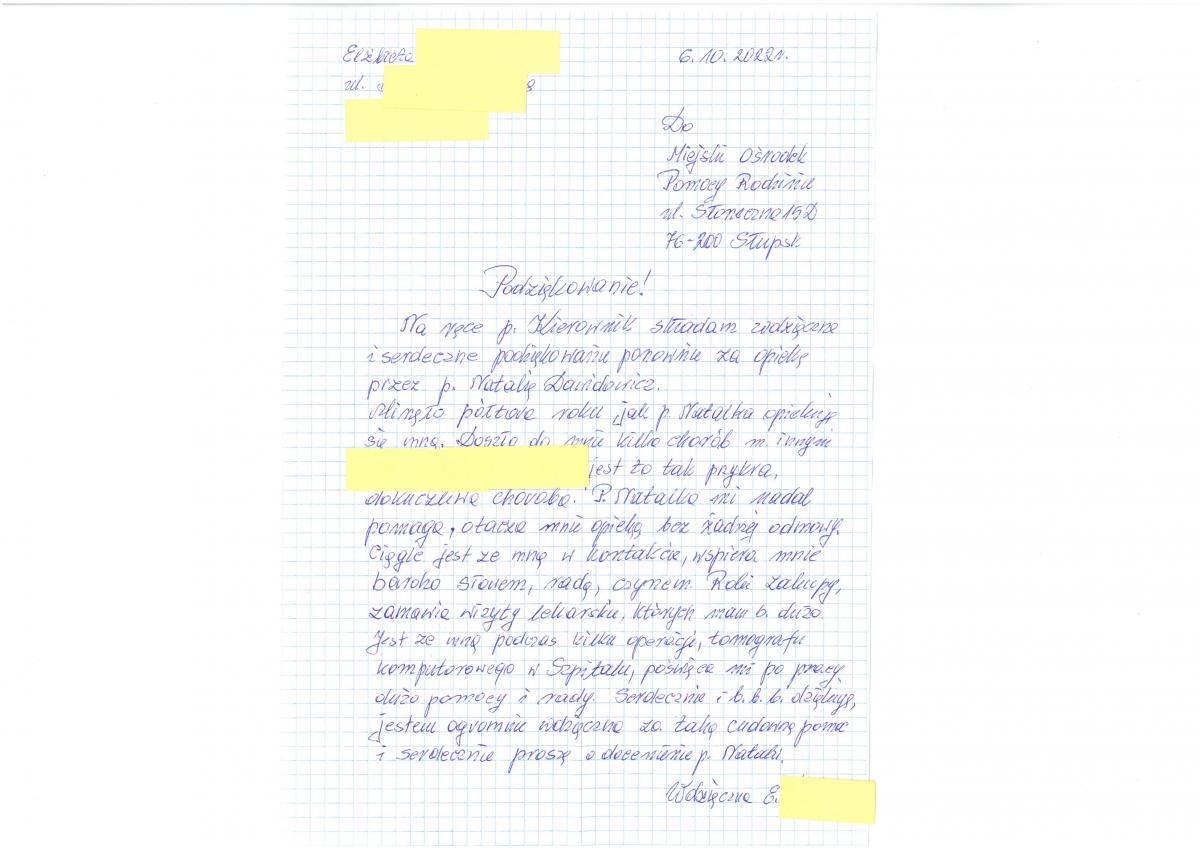 Elżbieta
6.10.2022r.
ul.
8
Do
Miejski Ośrodek
Pomocy Rodzinie
ul. Słoneczna 15D
76-200 Słupsk
Podziękowanie!
Na ręce p. Kierownik składam wdzięczne
i serdeczne podziękowanie ponownie za opiekę
przez p. Natalię Dawidowicz.
Minęło półtora roku jak p. Natalka opiekuje
się mną. Doszło do mnie kilka chorób m. innymi
jest to tak przykra,
dokuczliwa choroba. P. Natalka mi nadal
pomaga, otacza mnie opieką bez żadnej odmowy.
Ciągle jest ze mną w kontakcie, wspiera mnie
bardzo słowem, radą, czynem. Robi zakupy,
zamawia wizyty lekarskie, których mam b. dużo.
Jest ze mną podczas kilku operacji, tomografu
komputorowego w Szpitalu, poświęca mi po pracy
dużo pomocy i rady. Serdecznie i b. b. b. dziękuję,
jestem ogromnie wdzięczna za taką cudowną pomoc
i serdecznie proszę o docenienie p. Natalki.
Wdzięczna E.